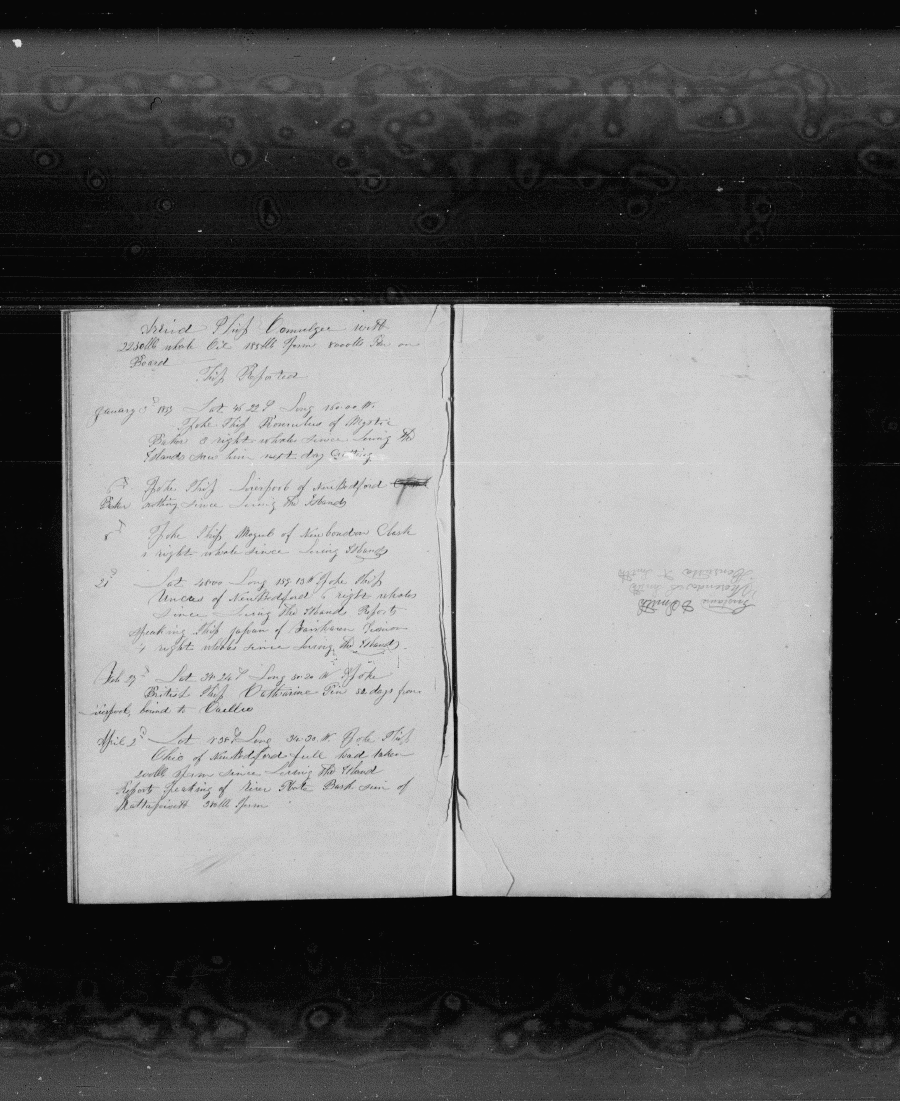 Arrived Ship Ocmulgee with
2250 bbls whale Oil 185 bbls Sperm 8000 lbs on
Board
Ship Reported
January 3d 1853 Lat 36 22 S Long 160.00 W.
Spoke Ship Romulus of Mystic
Baker 3 right whales since leaving the
Islands saw him next day Cutting
Spoke Ship Liverpool of New Bedford
Baker nothing since leaving the Islands
8th Spoke Ship Mogul of New London Clark
right whale since leaving Islands
21d Lat 4000 Long 159 13 W Spoke Ship
Uncas of New Bedford 2 right whales
since leaving the Island Reports
Speaking Ship Japan of Fairhaven
right whales since leaving the Islands.
Feb 27th Lat 34.24 S Long 50.20 W Spoke
British Ship Catharine 52 days from
Liverpool, bound to Callao
April 2d Lat S Long 34.30 W Spoke Ship
Ohio of New Bedford full had taken
200 bbls Sperm since Leaving the Island
Reports Speaking of River Plate Bark of
Mattapoisett 300 bbls Sperm
D Smith